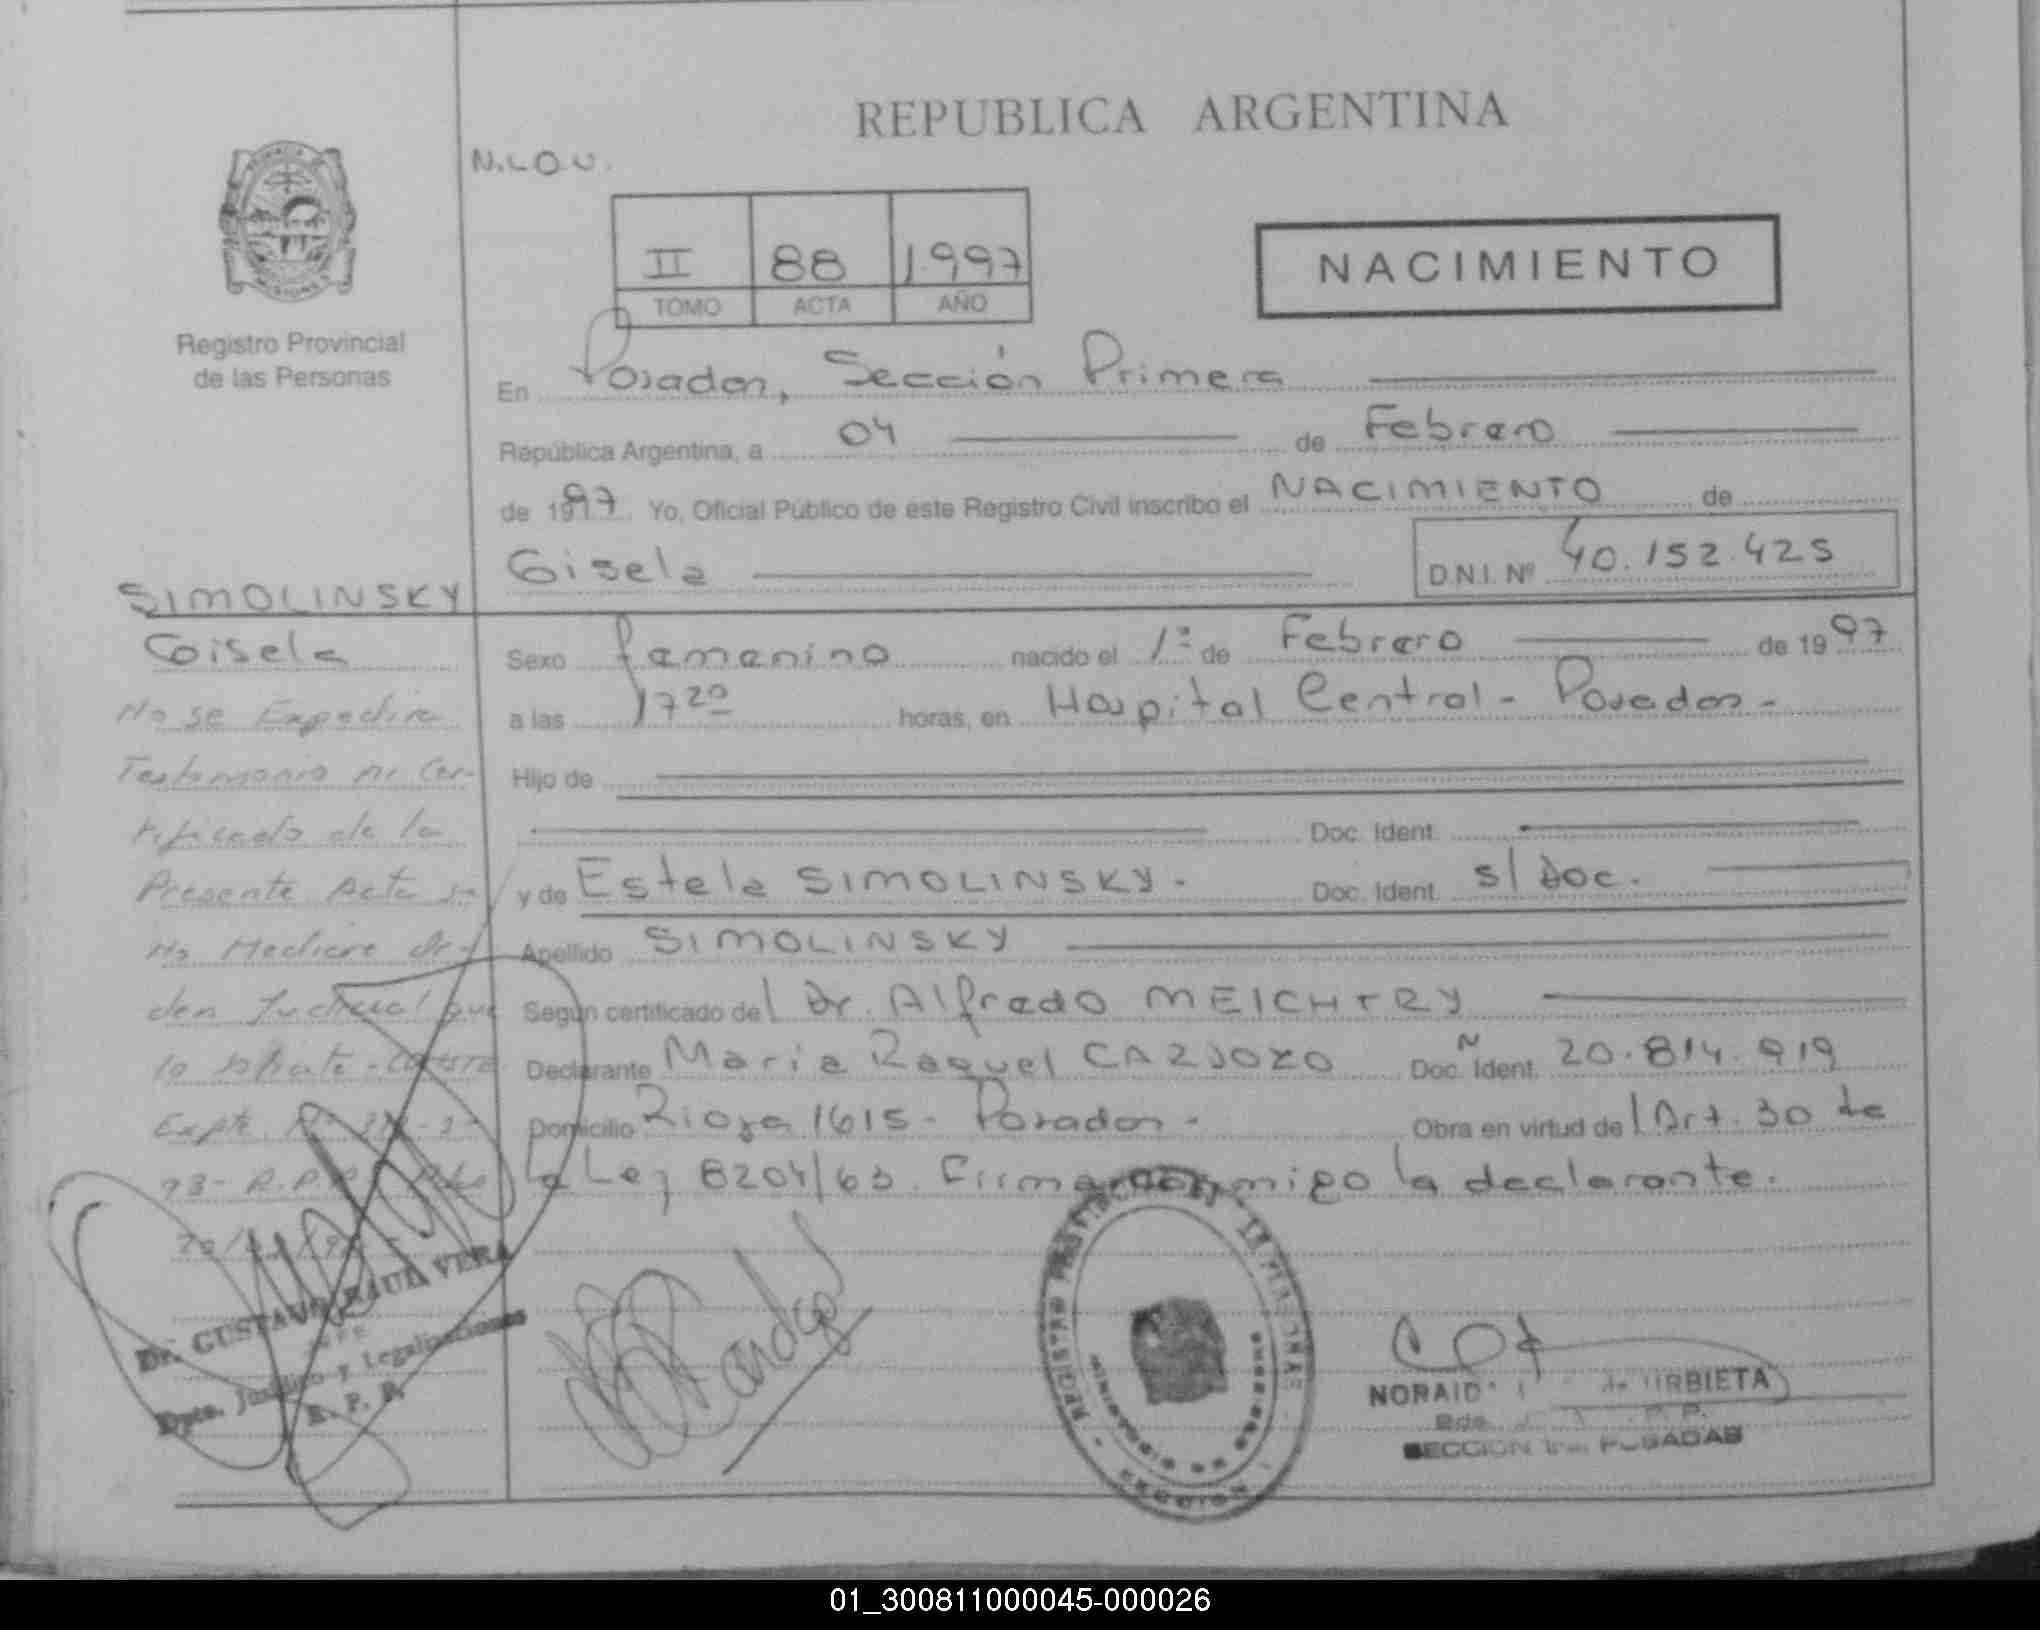 REPUBLICA ARGENTINA
N.L.O.U.
II 88 1.997
TOMO ACTA AÑO
NACIMIENTO
Registro Provincial
de las Personas
En Posadas, Sección Primera
República Argentina, a 04 de Febrero
de 1997 Yo, Oficial Público de este Registro Civil inscribo el NACIMIENTO de
Gisela D.N.I. Nº 40.152.425
SIMOLINSKY
Gisela
No se Expedira
Testimonio ni Cer-
tificado de la
Presente Acta si
No Mediare Or-
den Judicial que
lo solicite -
Expte. Nº
98- R.P.P.
Sexo femenino nacido el 1º de Febrero de 1997
a las 17 20 horas, en Hospital Central - Posadas -
Hijo de
Doc. Ident.
y de Estela SIMOLINSKY. Doc. Ident. s/Doc.
Apellido SIMOLINSKY
Según certificado del Dr. Alfredo MEICHTRY
Declarante Maria Raquel CARDOZO Doc. Ident. Nº 20.814.919
Domicilio Rioja 1615 - Posadas - Obra en virtud del Art. 30 de
la Ley 8204/63. Firma conmigo la declarante.
Dr. GUSTAVO RAUL VERA
JEFE
Dpto. Jurídico y Legalizaciones
R. P. P.
REGISTRO PROVINCIAL DE LAS PERSONAS
SECCION
NORAID de URBIETA
R. P.
SECCION 1ra. POSADAS
01_300811000045-000026